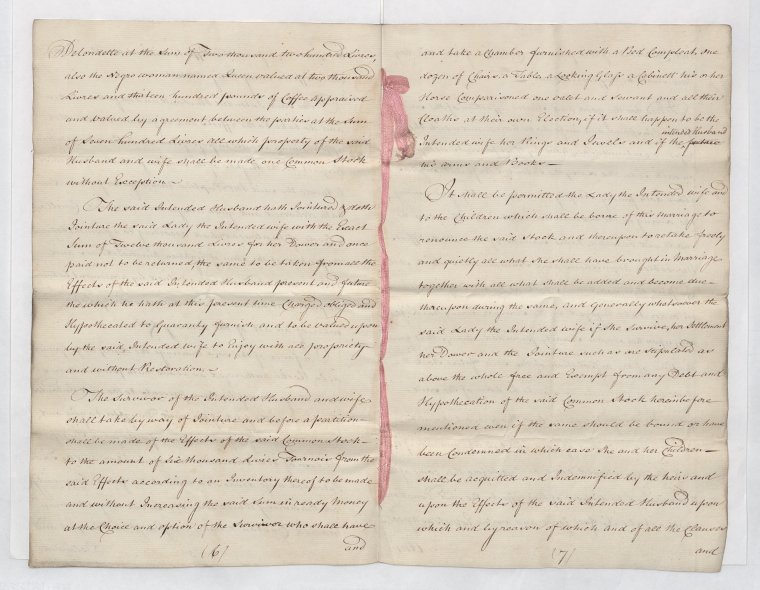 Delondelle at the Sum of Two thousand two hundred Livres,
also the Negro woman named Queen valued at two thousand
Livres and thirteen hundred pounds of Coffee appraised
and valued by agreement between the parties at the Sum
of Seven hundred Livres all which property of the said
Husband and wife shall be made one Common Stock
without Exception.
The said Intended Husband hath Jointured & doth
Jointure the said Lady the Intended wife with the Exact
Sum of Twelve thousand Livres for her Dower and once
paid not to be returned, the same to be taken from all the
Effects of the said Intended Husband present and future
the which he hath at this present time Charged obliged and
Hypothecated to Guaranty furnish and to be valued upon
by the said, Intended wife to Enjoy with all propriety
and without Restoration.
The Survivor of the Intended Husband and wife
shall take by way of Jointure and before a partition
shall be made of the Effects of the said Common Stock
to the amount of Six thousand Livres Tournois from the
said Effects according to an Inventory thereof to be made
and without Increasing the said Sum in ready Money
at the Choice and option of the Survivor who shall have
and
(6)
and take a Chamber furnished with a Bed Compleat, one
dozen of Chairs, a Table, a Looking Glass a Cabinett his or her
Horse Comparisoned one valet and Servant and all their
Cloaths at their own Election, if it shall happen to be the
intended Husband
Intended wife her Rings and Jewels and if the future
his arms and Books
It shall be permitted the Lady the Intended wife and
to the Children which shall be borne of this Marriage to
renounce the said Stock and thereupon to retake freely
and quietly all what She shall have brought in Marriage
together with all what shall be added and become due
thereupon during the same, and Generally whatsoever the
said Lady the Intended wife if She Survive, her Settlement
her Dower and the Jointure such as are Stipulated as
above the whole free and Exempt from any Debt and
Hypothecation of the said Common Stock hereinbefore
mentioned even if the same should be bound or have
been Condemned in which case She and her Children
shall be acquitted and Indemnified by the heir and
upon the Effects of the said Intended Husband upon
which and by reason of which and of all the Clauses
and
(7)